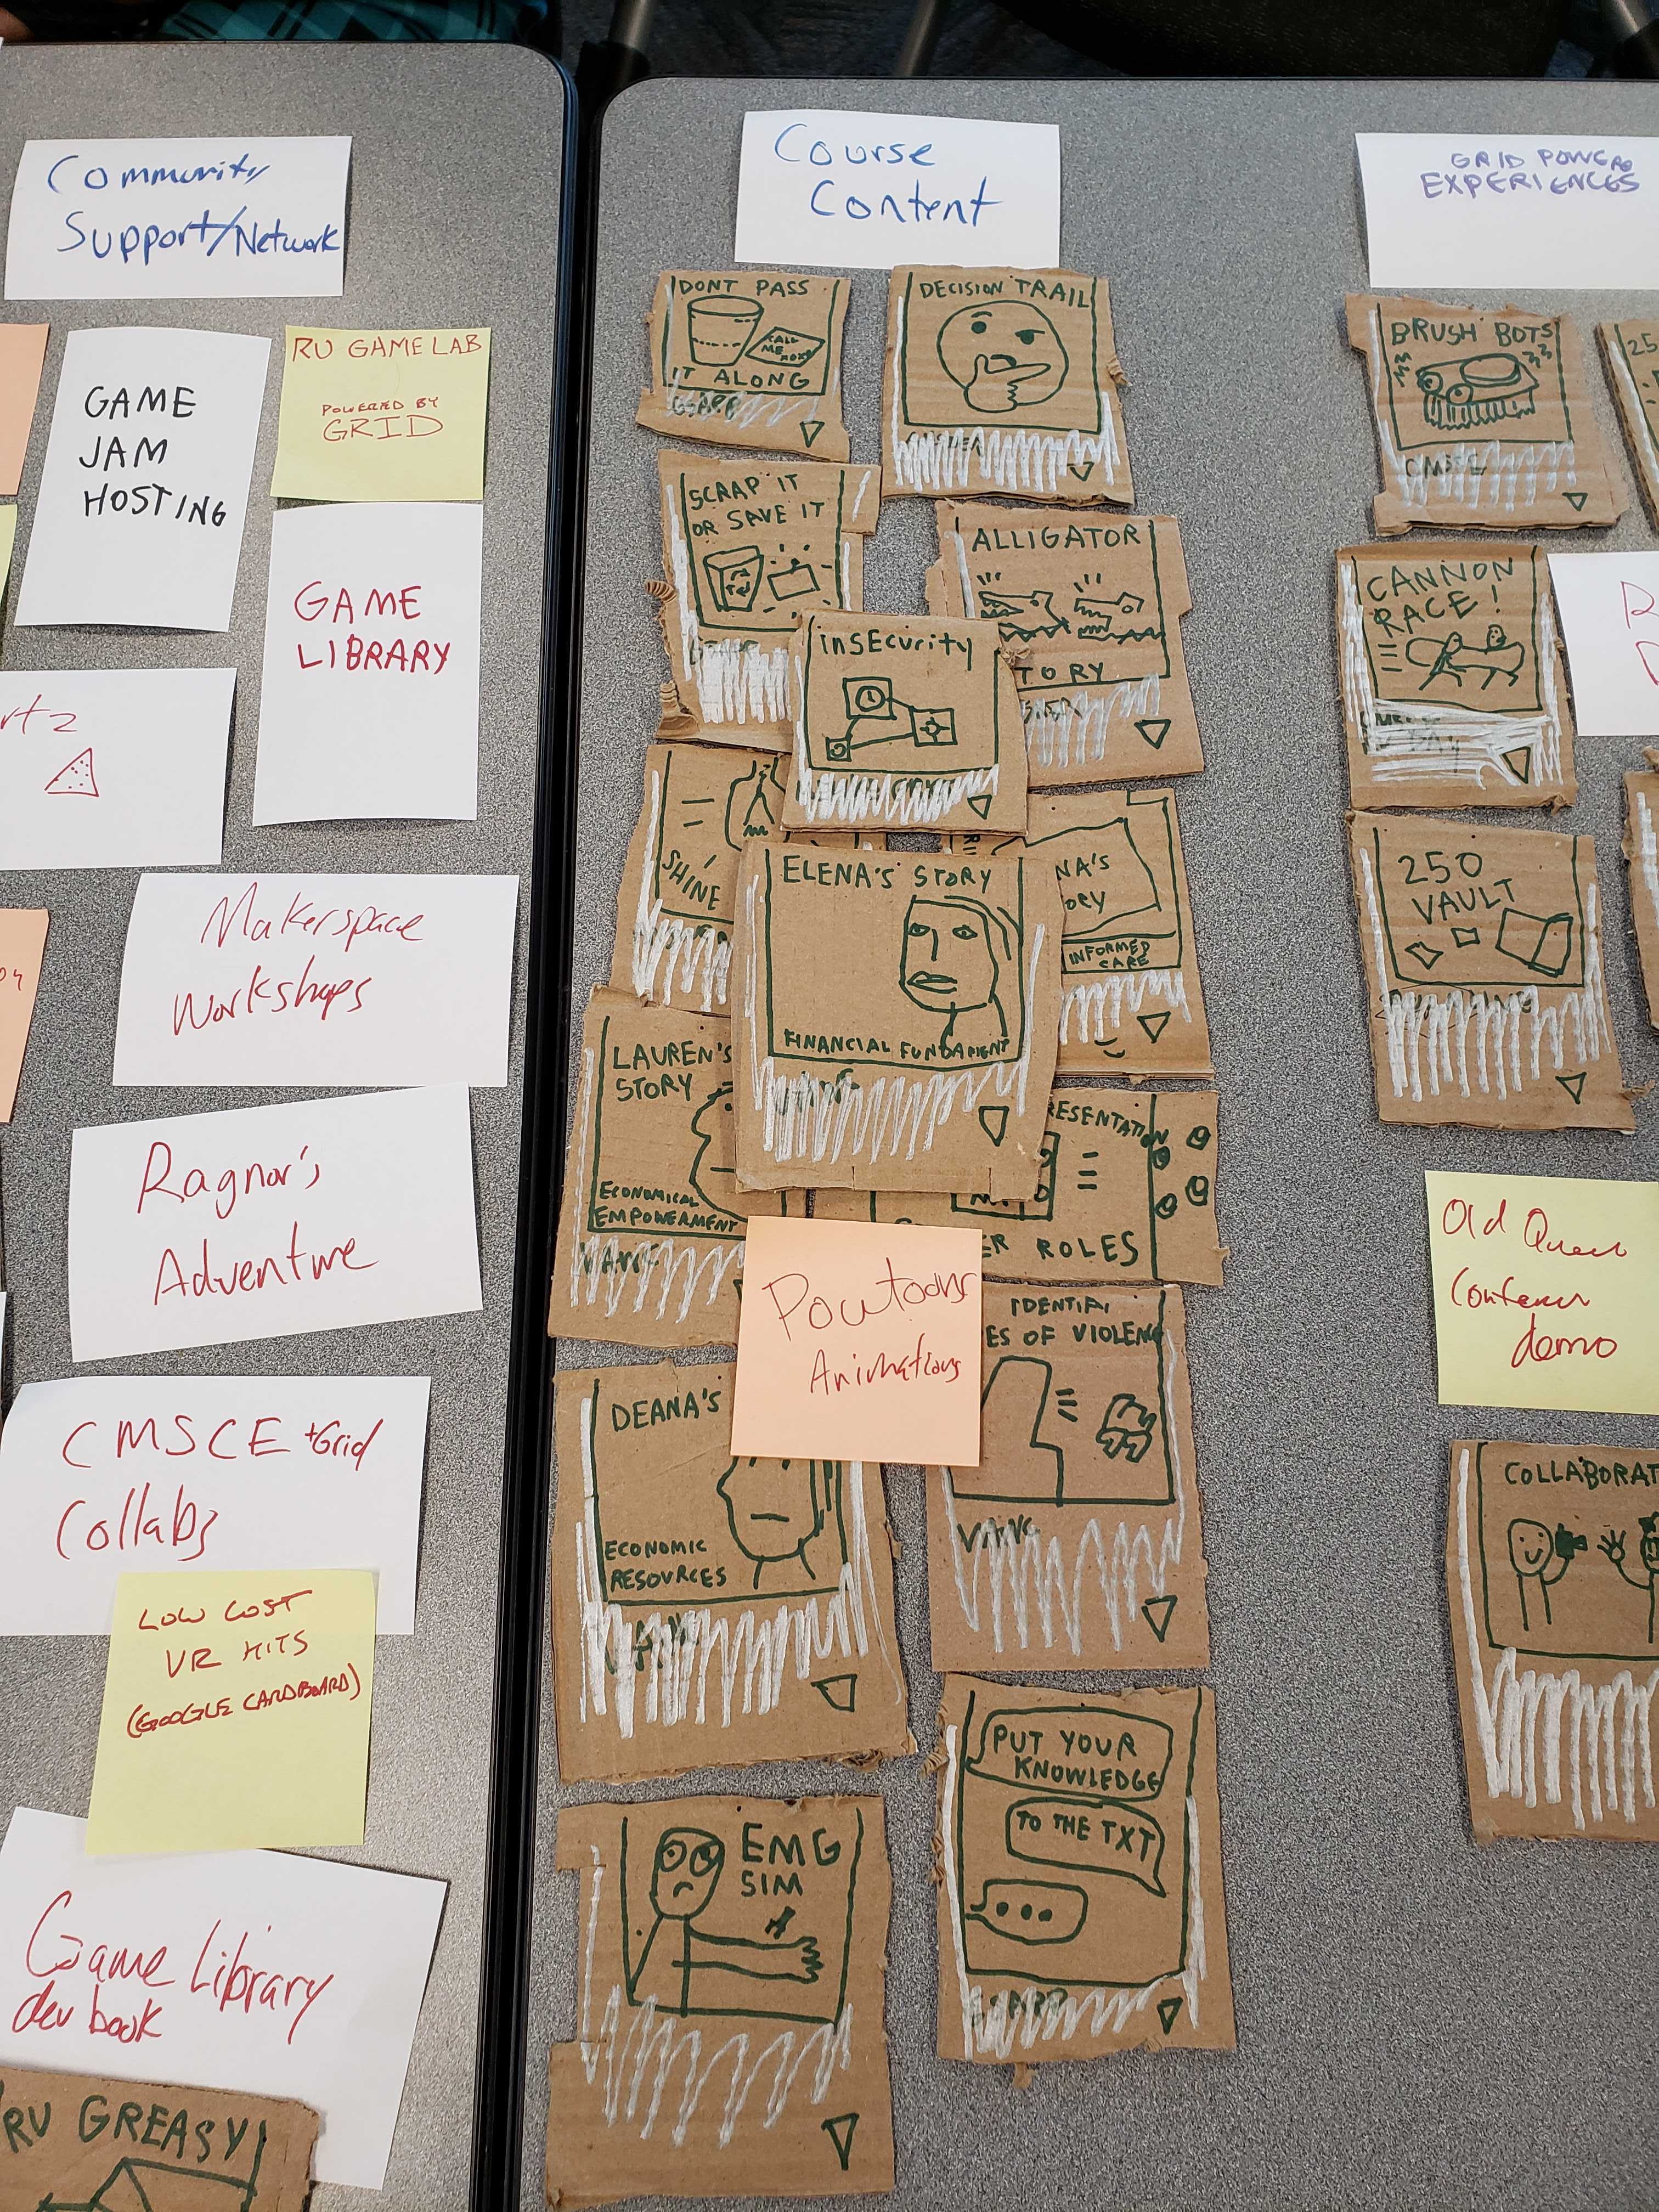 Community
Support/Network
GAME
JAM
HOSTING
RU GAME LAB
POWERED BY
GRID
GAME
LIBRARY
Makerspace
Workshops
Ragnar's
Adventure
CMSCE +Grid
Collabs
LOW COST
VR KITS
(GOOGLE CARDBOARD)
Game Library
dev book
RU GREASY
Course
Content
DONT PASS
CALL
ME
IT ALONG
DECISION TRAIL
SCRAP IT
OR SAVE IT
ALLIGATOR
TORY
inSEcurity
SHINE
NA'S
ORY
INFORMED
CARE
ELENA'S STORY
FINANCIAL FUNDAMENT
LAUREN'S
STORY
ECONOMICAL
EMPOWERMENT
RESENTATION
ER ROLES
Powtoons
Animations
IDENTIFY
ES OF VIOLENCE
VAWC
DEANA'S
ECONOMIC
RESOURCES
EMG
SIM
PUT YOUR
KNOWLEDGE
TO THE TXT
GRID POWERD
EXPERIENCES
BRUSH BOTS
CMSCE
25
CANNON
RACE!
R
250
VAULT
Old Queens
Conference
demo
COLLABORAT